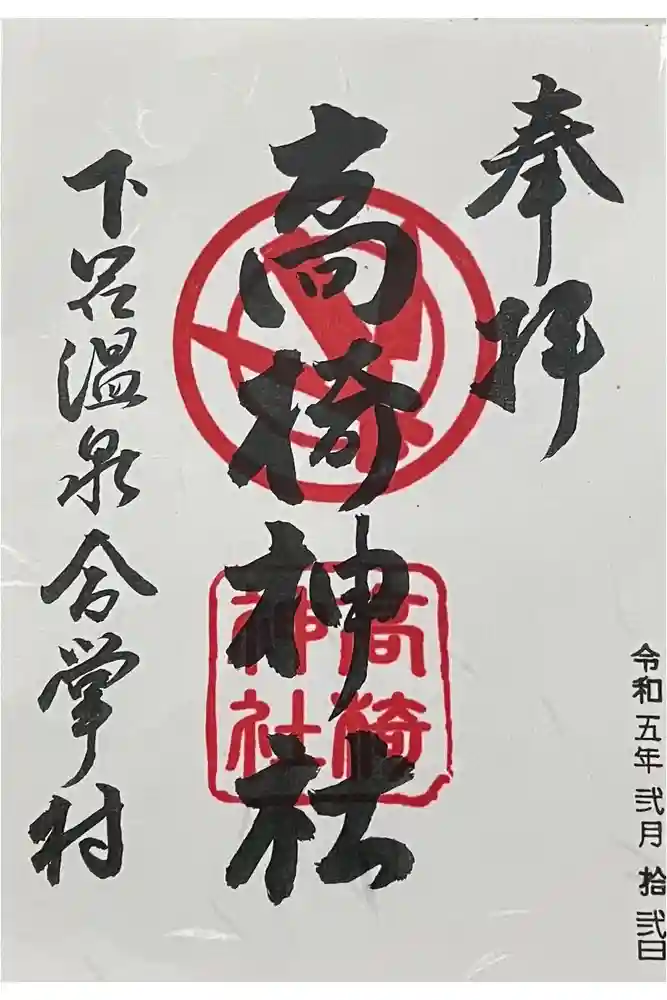 令和五年弐月拾弐日
奉拝
高椅神社
高椅
神社
下呂温泉合掌村